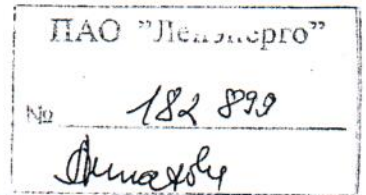 ПАО "Ленэнерго"
№ 182 899